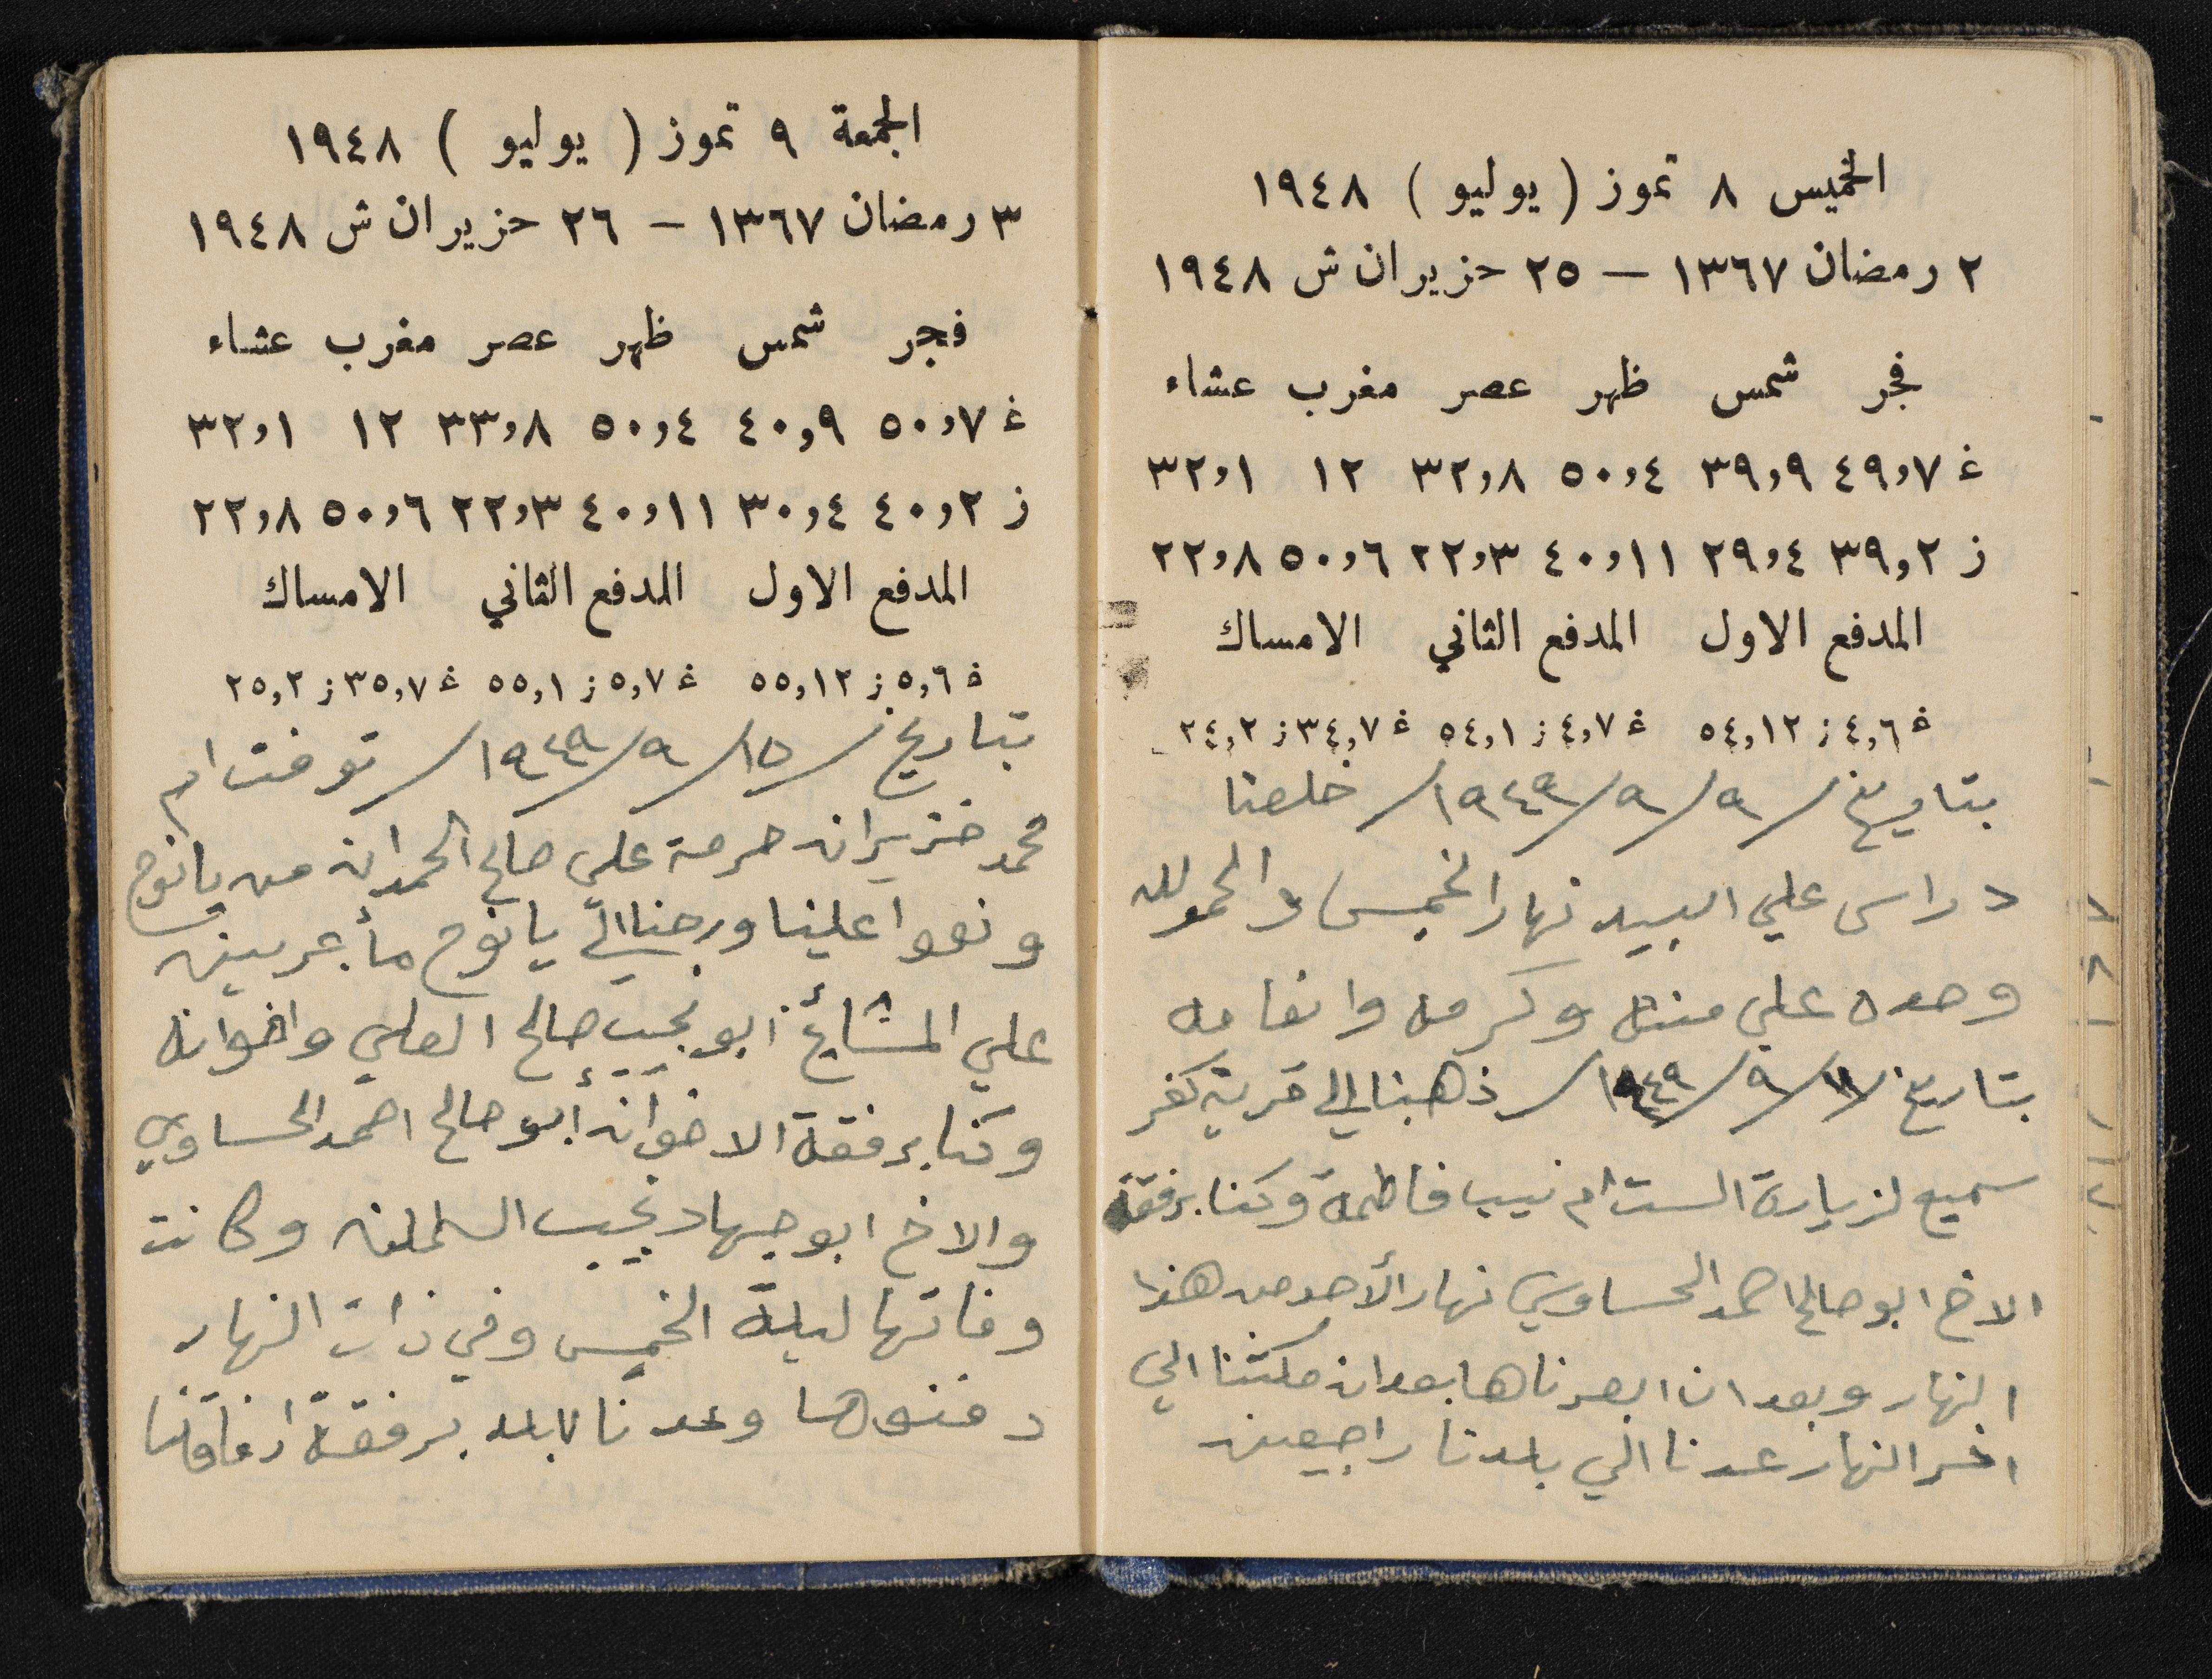 الخميس ٨ تموز ( يوليو ) ١٩٤٨
٢ رمضان ١٣٦٧ — ٢٥ حزيران ش ١٩٤٨
فجر شمس ظهر عصر مغرب عشاء
غ ٤٩,٧ ٣٩,٩ ٥٠,٤ ٣٢,٨ ١٢ ٣٢,١
ز ٣٩,٢ ٢٩,٤ ٤٠,١١ ٢٢,٣ ٥٠,٦ ٢٢,٨
المدفع الاول المدفع الثاني الامساك
غ ٤,٦ ز ٥٤,١٢ غ ٤,٧ ز ٥٤,١ غ ٣٤,٧ ز ٢٤,٢
بتاريخ / ٩ / ٩ / ١٩٤٩ / خلصنا
دراس علي البيدر نهار الخميس والحمد لله
وحده علي مننه وكرمه وانعامه
بتاريخ / ١١ / ٩ / ١٩٤٩ / ذهبنا الى قرية كفر
سميع لزيارة الست ام نسيب فاطمة وكنا برفقة
الاخ ابو صالح احمد الحساوي نهار الأحد من هذا
النهار وبعد ان ابصرناها بعد ان مكثنا الي
اخر النهار عدنا الي بلدنا راجعين
الجمعة ٩ تموز ( يوليو ) ١٩٤٨
٣ رمضان ١٣٦٧ — ٢٦ حزيران ش ١٩٤٨
فجر شمس ظهر عصر مغرب عشاء
غ ٥٠,٧ ٤٠,٩ ٥٠,٤ ٣٣,٨ ١٢ ٣٢,١
ز ٤٠,٢ ٣٠,٤ ٤٠,١١ ٢٢,٣ ٥٠,٦ ٢٢,٨
المدفع الاول المدفع الثاني الامساك
غ ٥,٦ ز ٥٥,١٢ غ ٥,٧ ز ٥٥,١ غ ٣٥,٧ ز ٢٥,٢
بتاريخ / ١٥ / ٩ / ١٩٤٩ / توفت ام
محمد خزيران حرمة علي صالح الحمدان من يانوح
ونعوا علينا ورحنا الي يانوح مأجرين
علي المشايخ ابو نجيب صالح العلي واخوانه
وكنا برفقة الاخوان أبو صالح احمد الحساوي
والاخ ابو جهاد نجيب وكانت
وفاتها ليلة الخميس وفي ذات النهار
دفنوها وعدنا للبلد برفقة ارفاقنا